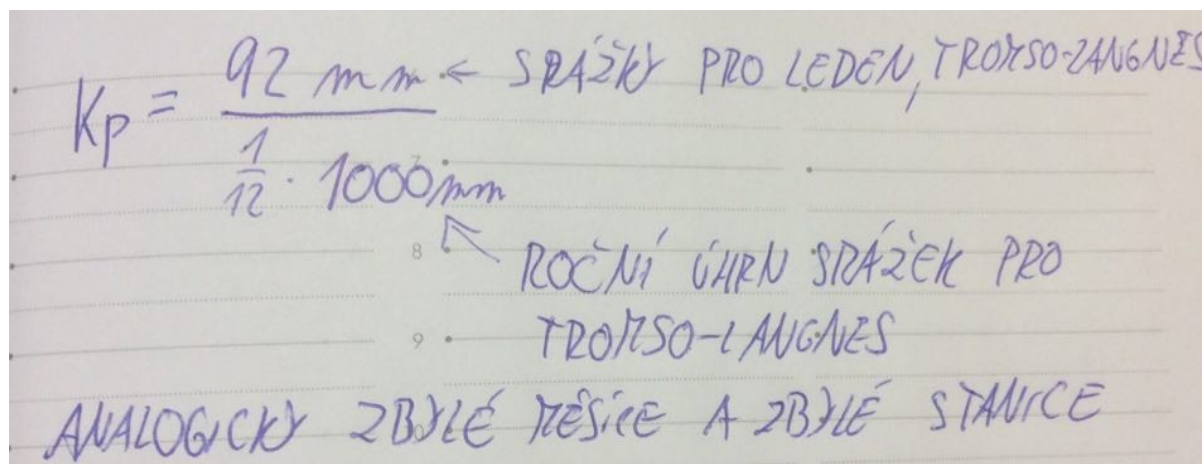 Kp = 92 mm ← SRÁŽKY PRO LEDEN, TROMSO-LANGNES
1/12 · 1000 mm
7
8
ROČNÍ ÚHRN SRÁŽEK PRO
9
TROMSO-LANGNES
ANALOGICKY ZBYLÉ MĚSÍCE A ZBYLÉ STANICE